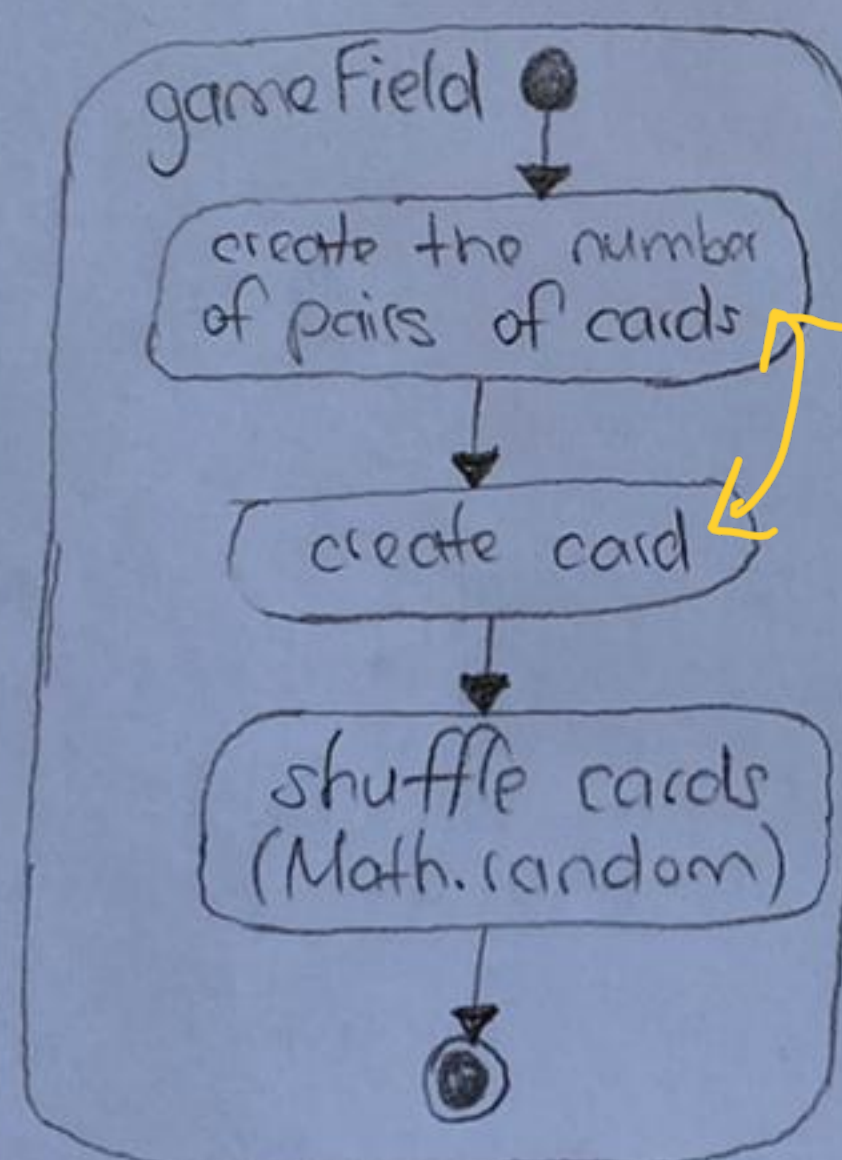 gameField
create the number
of pairs of cards
create card
shuffle cards
(Math.random)